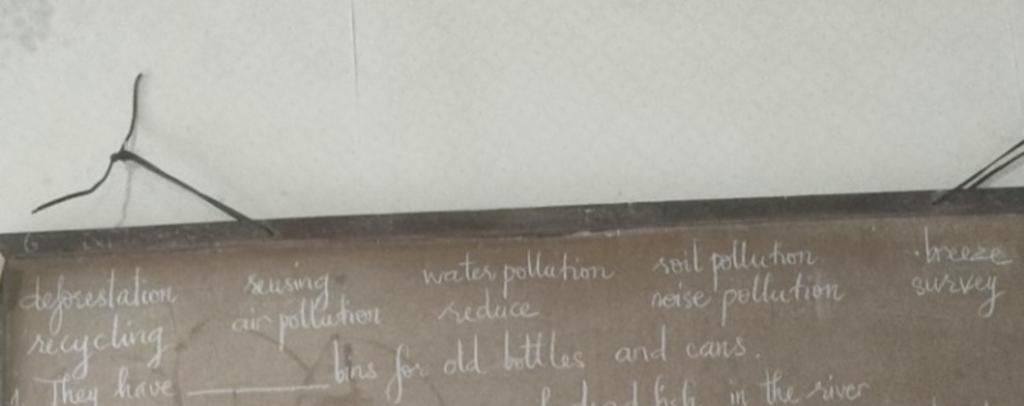 deforestation reusing water pollution soil pollution breeze
recycling air pollution reduce noise pollution survey
They have ________ bins for old bottles and cans.
dead fish in the river